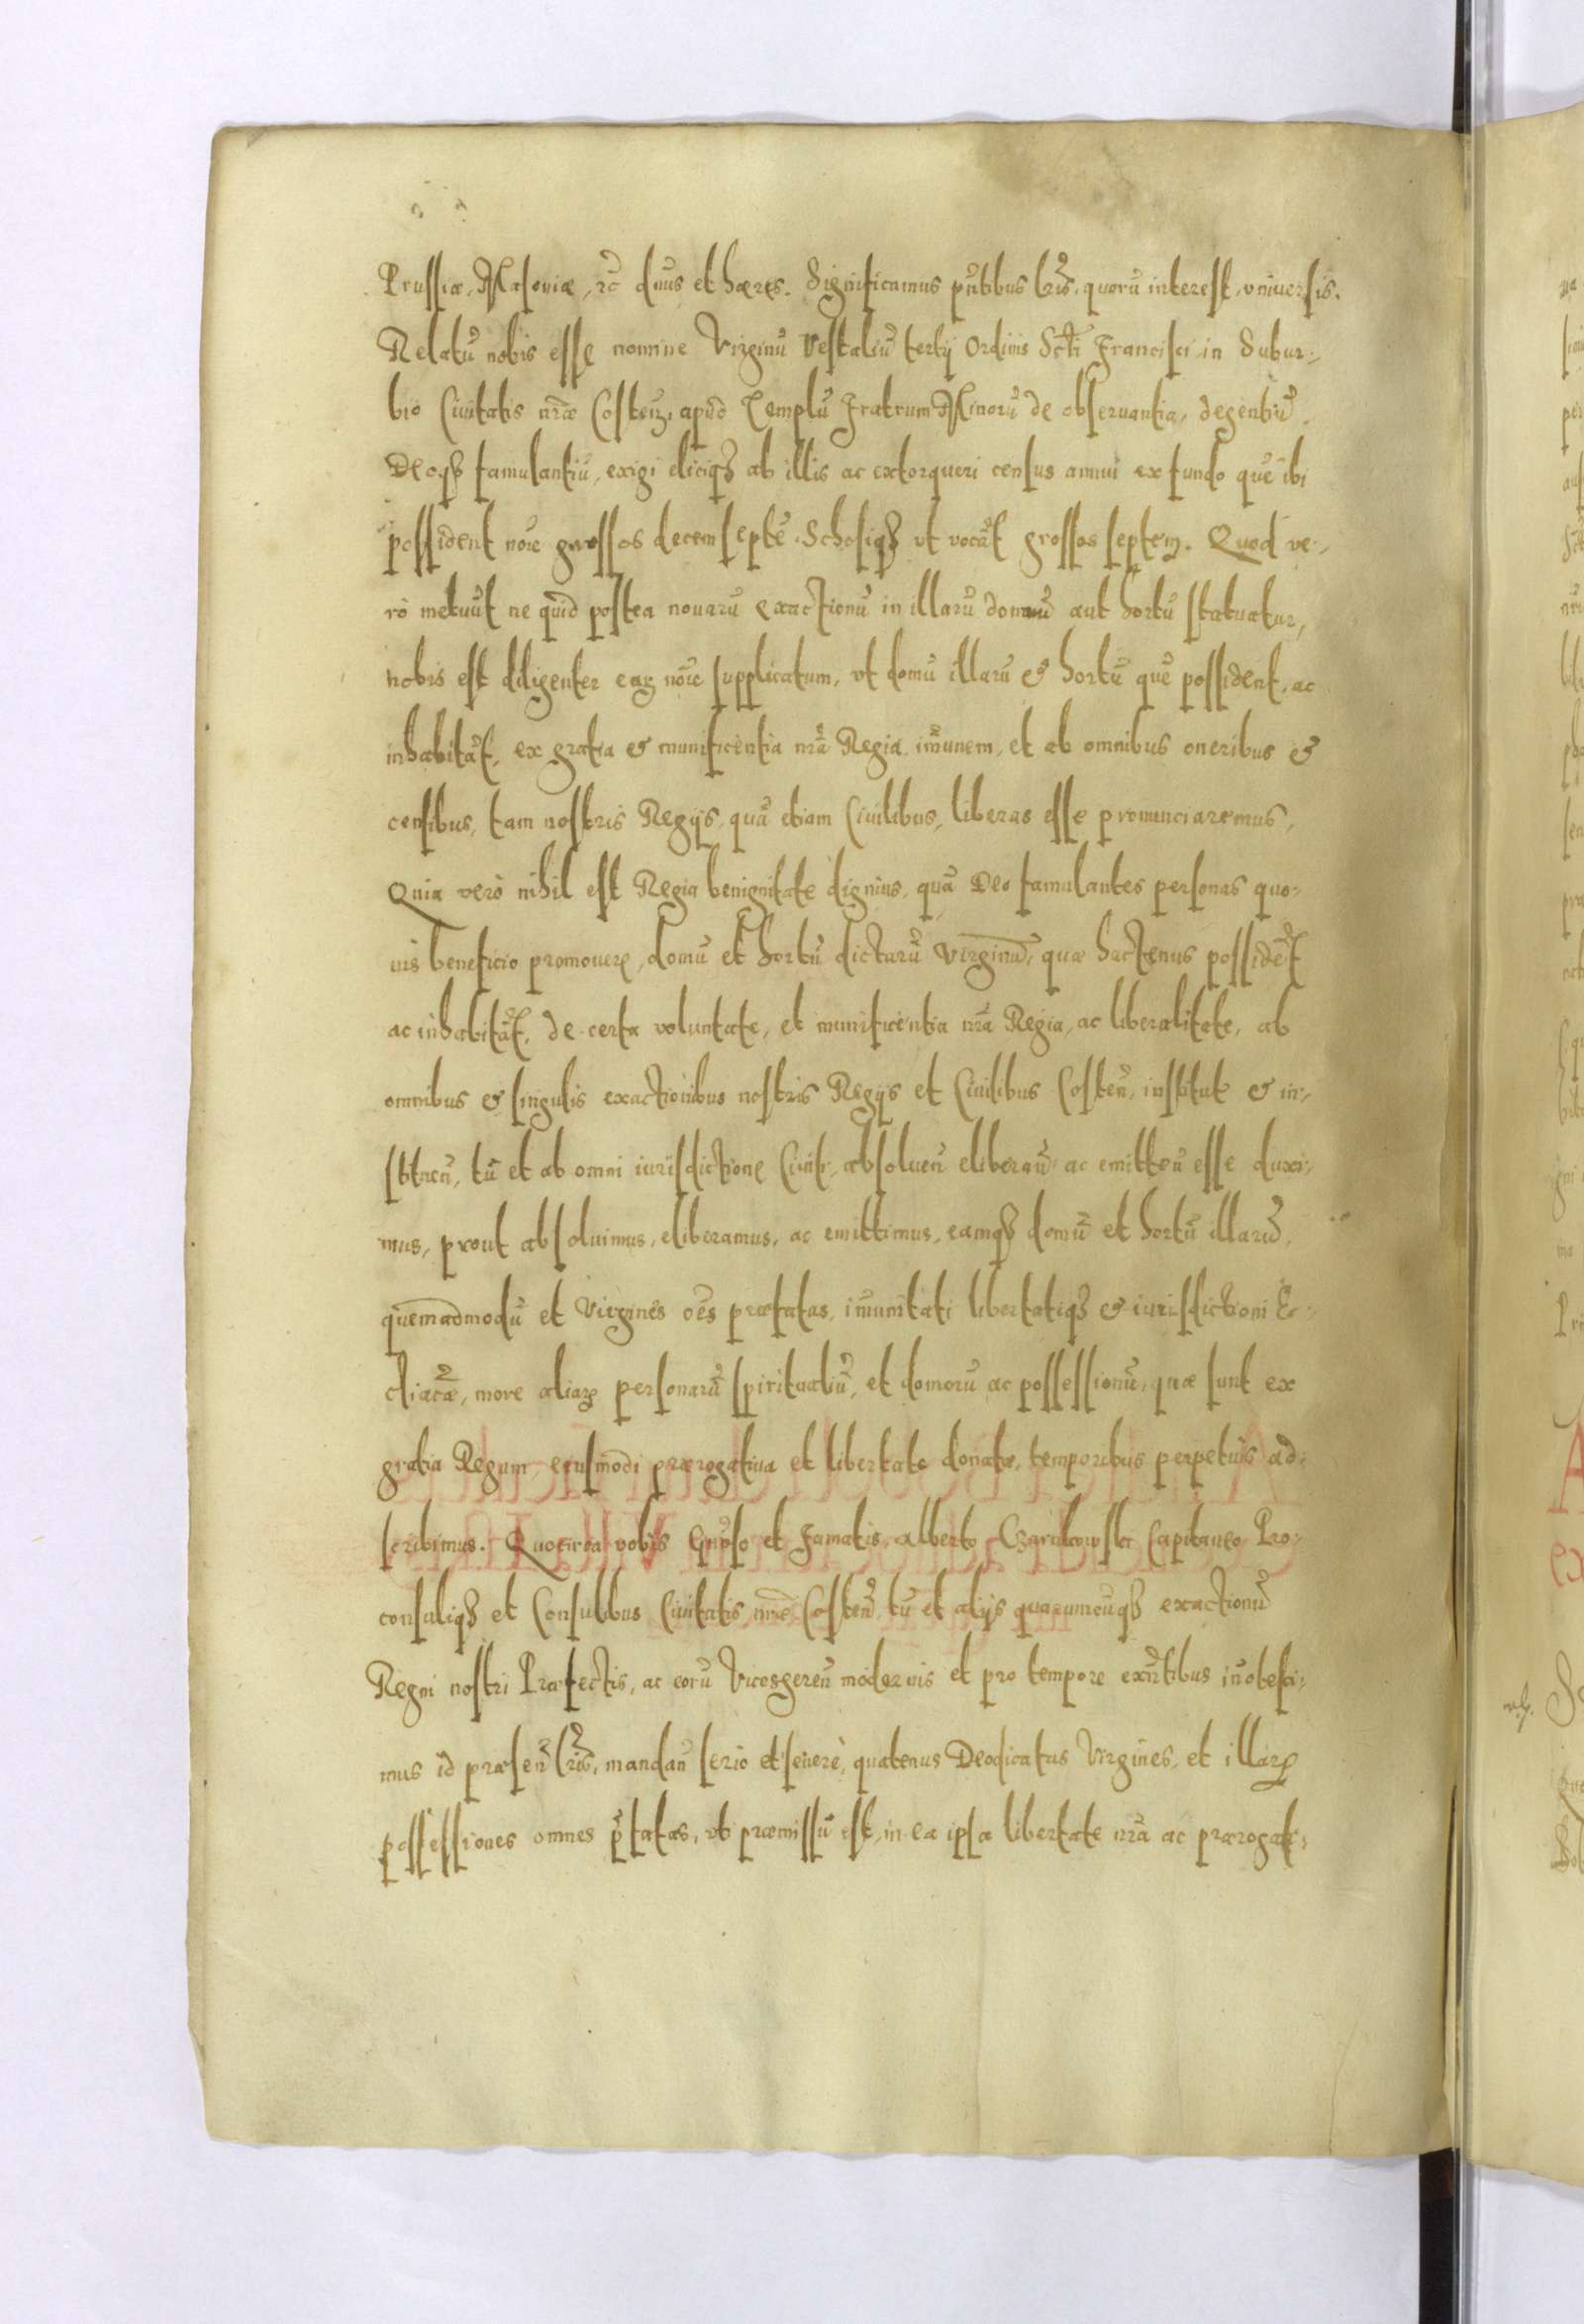 Prussiæ, Masoviæ, rc̃ dñus et hæres. Significamus pñtibus lr̃is, quorũ interest, vniuersis.
Relatũ nobis esse nomine Virginũ Vestaliũ tertij Ordinis Scti Francisci in Subur-
bio Ciuitatis nr̃æ Costen̄, apud Templũ Fratrum Minorũ de obseruantia, degentiũ
Deoqȝ famulantiũ, exigi eliciqȝ ab illis ac extorqueri census annui ex fundo quẽ ibi
possident nõie grossos decem septẽ Schosiqȝ vt vocãt grossos septem. Quod ve-
rò metuũt ne quid postea nouarũ exactionũ in illarũ domũ aut hortũ statuatur,
nobis est diligenter earꝫ nõie supplicatum, vt domũ illarũ & hortũ quẽ possident, ac
inhabitãt, ex gratia & munificentia nr̃a Regia im̃unem, et ab omnibus oneribus &
censibus, tam nostris Regijs, quã etiam Ciuilibus, liberas esse pronunciaremus,
Quia verò nihil est Regia benignitate dignius, quã Deo famulantes personas quo-
uis beneficio promouere, domũ et hortũ dictarũ Virginũ, quæ hactenus possidẽt
ac inhabitãt, de certa voluntate, et munificentia nr̃a Regia, ac liberalitate, ab
omnibus & singulis exactionibus nostris Regijs et Ciuilibus Costen̄, institut̃ & in-
stituen̄, tũ et ab omni iurisdictione Ciuit̃, absoluen̄ eliberan̄ ac emitten̄ esse duxi-
mus, prout absoluimus, eliberamus, ac emittimus, eamqȝ domũ et hortũ illarũ,
quemadmodũ et Virgines oẽs præfatas, im̃unitati libertatiqȝ & iurisdictioni Ec-
cliasticæ, more aliarꝫ personarũ spiritualiũ, et domorũ ac possessionũ, quæ sunt ex
gratia Regum, eiusmodi prærogatiua et libertate donatæ, temporibus perpetuis ad-
scribimus. Quocirca vobis Gñoso et Famatis, Alberto Czarnkowski Capitaneo Pro-
consuliqȝ et Consulibus Ciuitatis nr̃æ Costen̄, tũ et alijs quarumcuqȝ exactionũ
Regni nostri Præfectis, ac eorũ Vicesgeren̄ modernis et pro tempore exñtibus iñotesci-
mus id præsen̄ lr̃is, mandan̄ serio et seuerè, quatenus Deodicatas Virgines, et illarꝫ
possessiones omnes p̃fatas, vti præmissũ est, in ea ipsa libertate nr̃a ac prærogati-